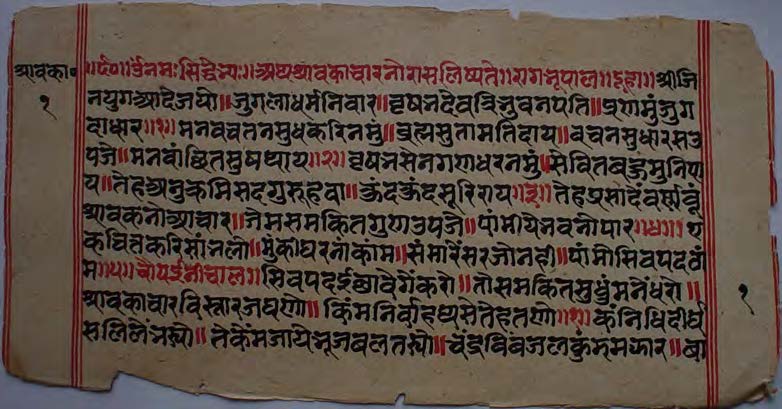 श्रावका॰ ॥ॐनमः सिद्धेभ्यः॥ अथ श्रावकाचारनो रास लिष्यते॥ राग भूपाल॥ दूहा॥ श्री जि
नयुगआदे जयो॥ जुगलाधर्मनिवार॥ वृषनदेव त्रिभुवनपति॥ प्रणमुं जुग
दाधार॥१॥ मनवचतनसुधकरि नमुं॥ ब्रह्मसुतामतिदाय॥ वचनसुधारस उ
पजे॥ मनवांछितसुषथाय॥२॥ वृषनसेनगणधर नमुं॥ सेवितबहुमुनिपा
य॥ तेह अनुक्रमि सदगुरु हवा॥ कुंदकुंदसूरिराय॥३॥ तेह प्रसादें वर्णवूं
श्रावकनो आचार॥ जेम समकितगुण उपजे॥ पांमीये नवनो पार॥४॥ ए
कचितकरि सांनलो॥ मुकी घरनां कांम॥ संसारें सर जो नही॥ पांमो सिवपद वां
म॥५॥ चौपईनी चाल॥ सिवपद ई वेगें करो॥ तो समकित सुधुं मने धरो॥
श्रावकाचार विस्तार ज घणो॥ किंम निर्वाह थासे तेह तणो॥१॥ कंनिधि दीर्घ
सलिलें नस्यो॥ ते केंम जाये नूजबल तस्यो॥ चंद्रबिंब जलकुंनमफार॥ बा
१
१